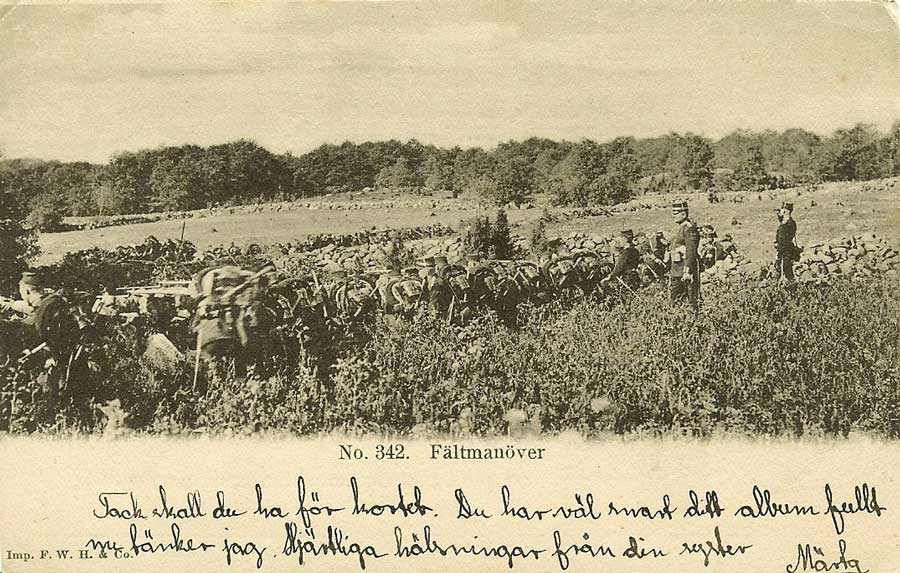 No. 342. Fältmanöver
Tack skall du ha för kortet. Du har väl snart ditt album fullt
nu tänker jag. Hjärtliga hälsningar från din syster
Märta
Imp. F. W. H. & Co.